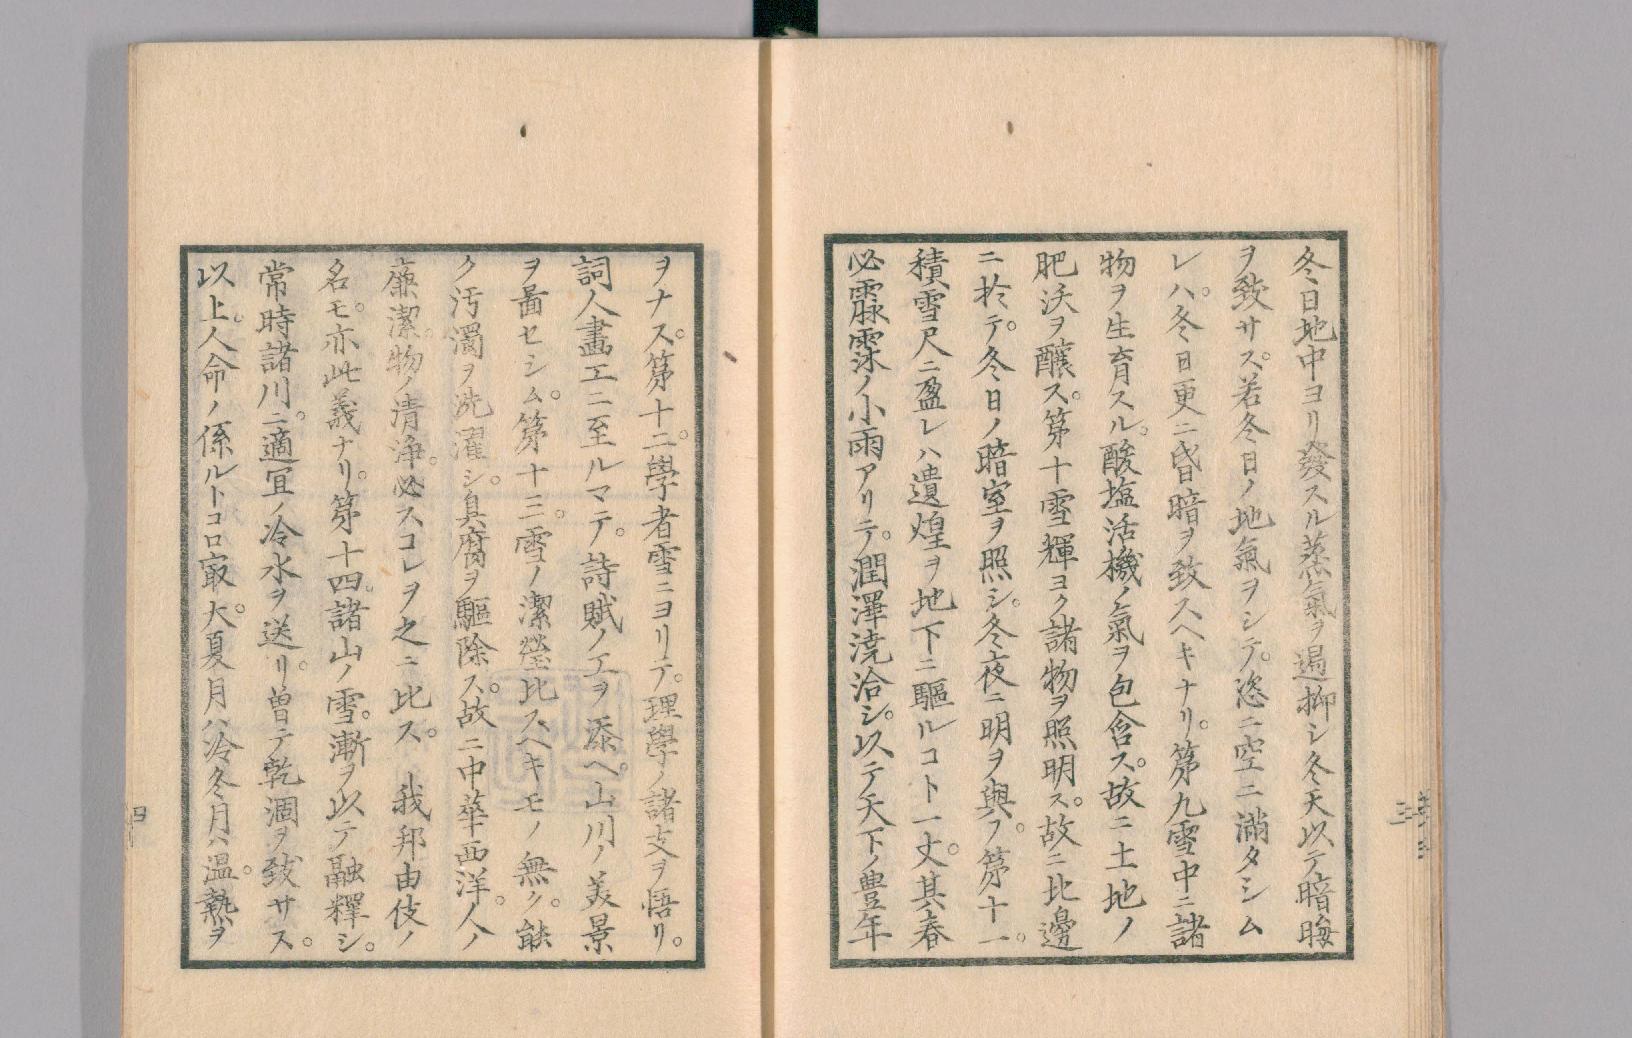 冬日地中ヨリ發スル蒸氣ヲ遏抑シ冬天以テ暗晦
ヲ致サス。若冬日ノ地氣ヲシテ。恣ニ空ニ滿タシム
レハ。冬日更ニ昏暗ヲ致スヘキナリ。第九雪中ニ諸
物ヲ生育スル。酸塩活機ノ氣ヲ包含ス。故ニ土地ノ
肥沃ヲ釀ス。第十雪輝ヨク諸物ヲ照明ス。故ニ北邊
ニ於テ。冬日ノ暗室ヲ照シ。冬夜ニ明ヲ與フ。第十一。
積雪尺ニ盈レハ遺蝗ヲ地下ニ驅ルコト一丈。其春
必霢霂ノ小雨アリテ。潤澤澆洽シ。以テ天下ノ豊年
ヲナス。第十二。學者雪ニヨリテ。理學ノ諸支ヲ悟リ。
詞人畫工ニ至ルマテ。詩賦ノ工ヲ添ヘ。山川ノ美景
ヲ啚セシム。第十三。雪ノ潔瑩比スヘキモノ無ク。能
ク汚濁ヲ洗濯シ。臭腐ヲ驅除ス。故ニ中華西洋。人ノ
廉潔。物ノ清浄。必スコレヲ之ニ比ス。我邦由伎ノ
名モ。亦此義ナリ。第十四。諸山ノ雪。漸ヲ以テ融釋シ。
常時諸川。ニ適冝ノ冷水ヲ送リ。曽テ乾涸ヲ致サス。
以上。人命ノ係ルトコロ㝡大。夏月ハ冷冬月ハ温。熱ヲ
三
四